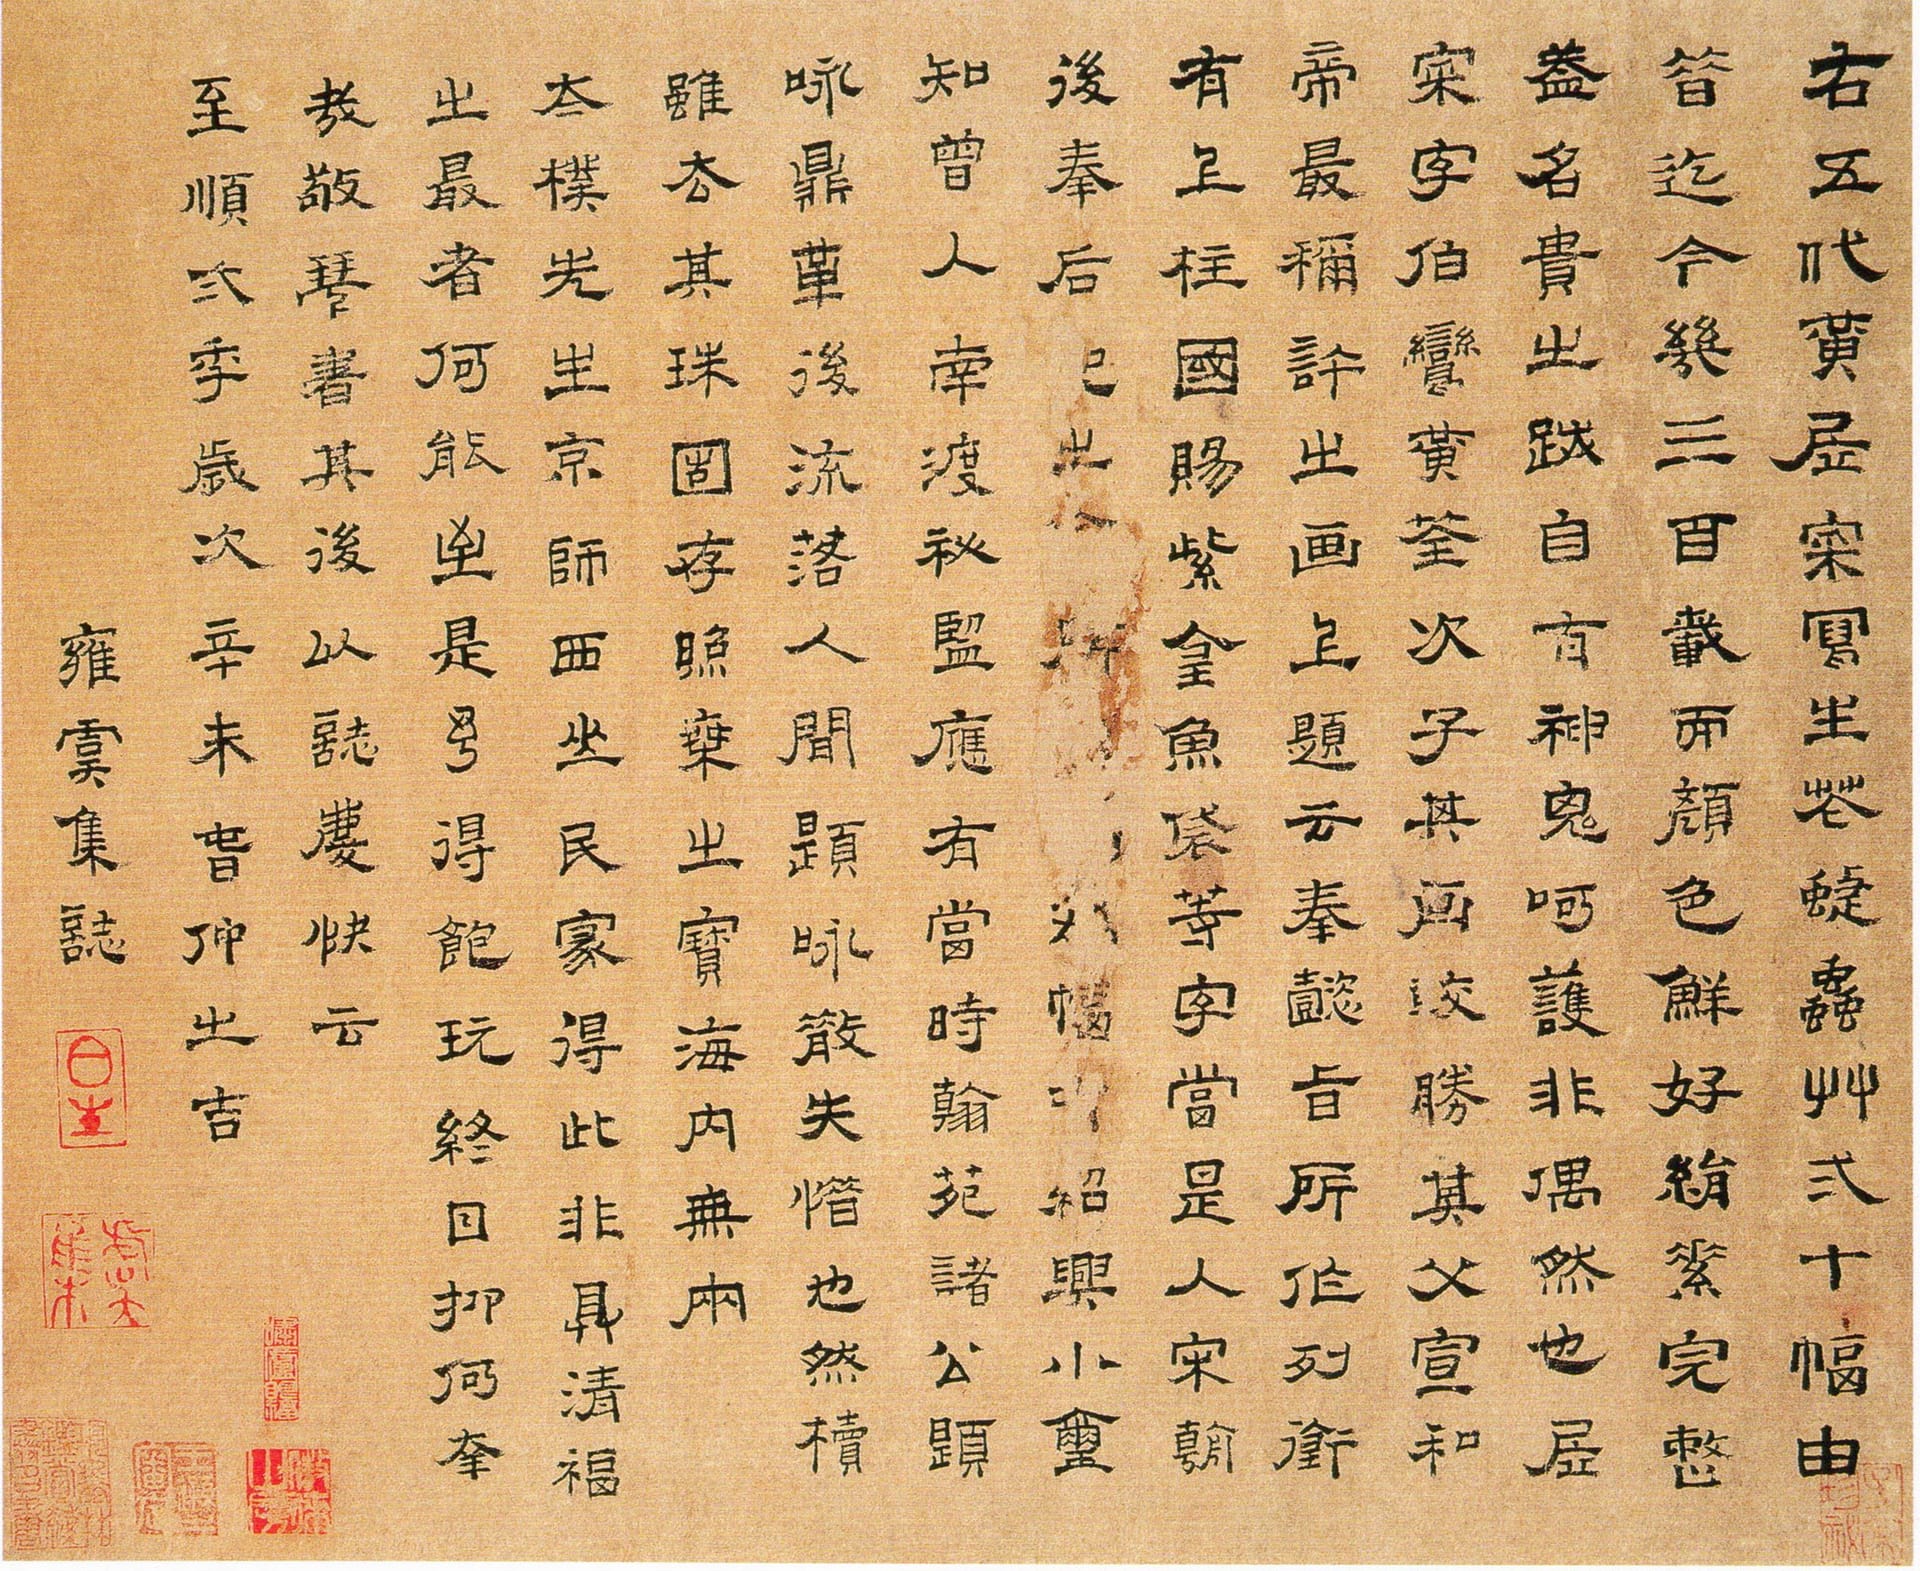 右五代黃居寀寫生花蜨蟲艸弍十幅由
晉迄今幾三百載而顏色鮮好絹素完整
蓋名貴之跡自有神鬼呵護非偶然也居
寀字伯鸞黃荃次子其画較勝其父宣和
帝最稱許之画上題云奉懿旨所作列銜
有上柱國賜紫金魚袋等字當是入宋朝
後奉后 之 幅 紹興小璽
知曾入南渡祕監應有當時翰苑諸公題
咏鼎革後流落人間題咏散失惜也然櫝
雖去其珠固存照乘之寶海內無兩
太樸先生京師西坐民家得此非具清福
之最者何能至是号得飽玩終日抑何幸
哉敬琴書其後以誌慶快云
至順弍季歲次辛未春仲之吉
雍虞集誌